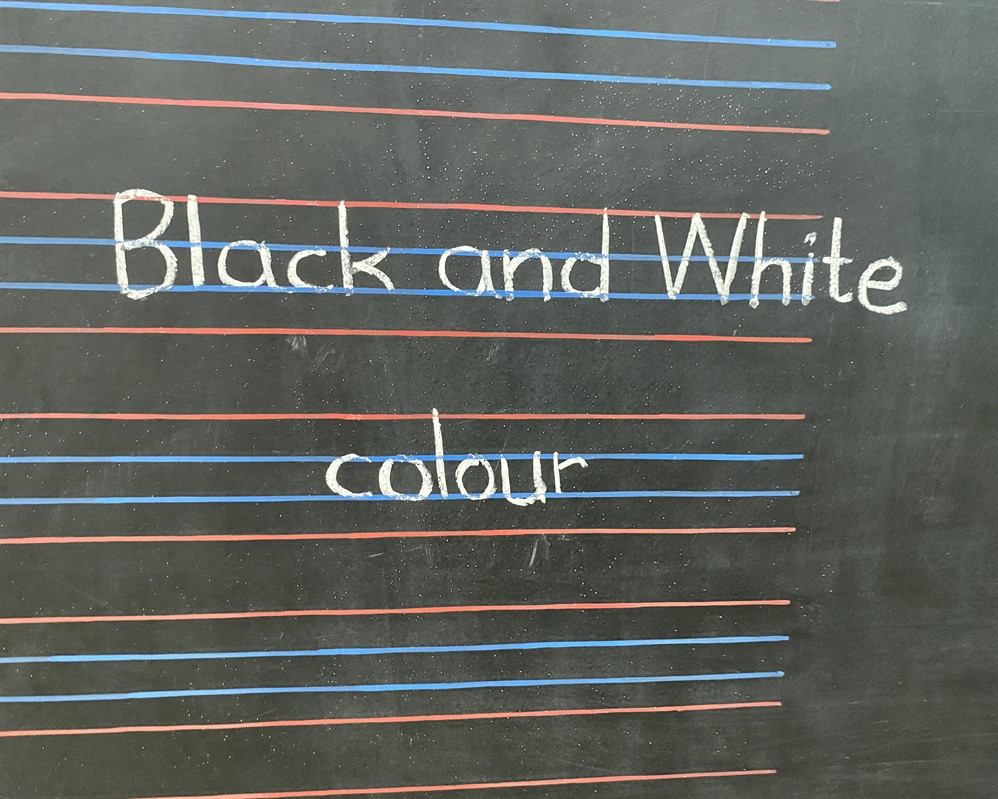 Black and White
colour